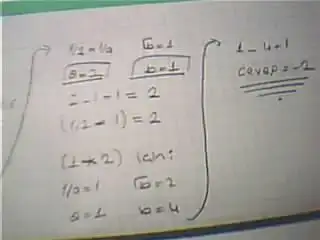 1/2 = 1/a √b = 1
a = 2 b = 1
2 - 1 - 1 = 2
(1/2 - 1) = 2
(1 * 2) için:
1/a = 1 √b = 2
a = 1 b = 4
1 - 4 + 1
cevap = -2